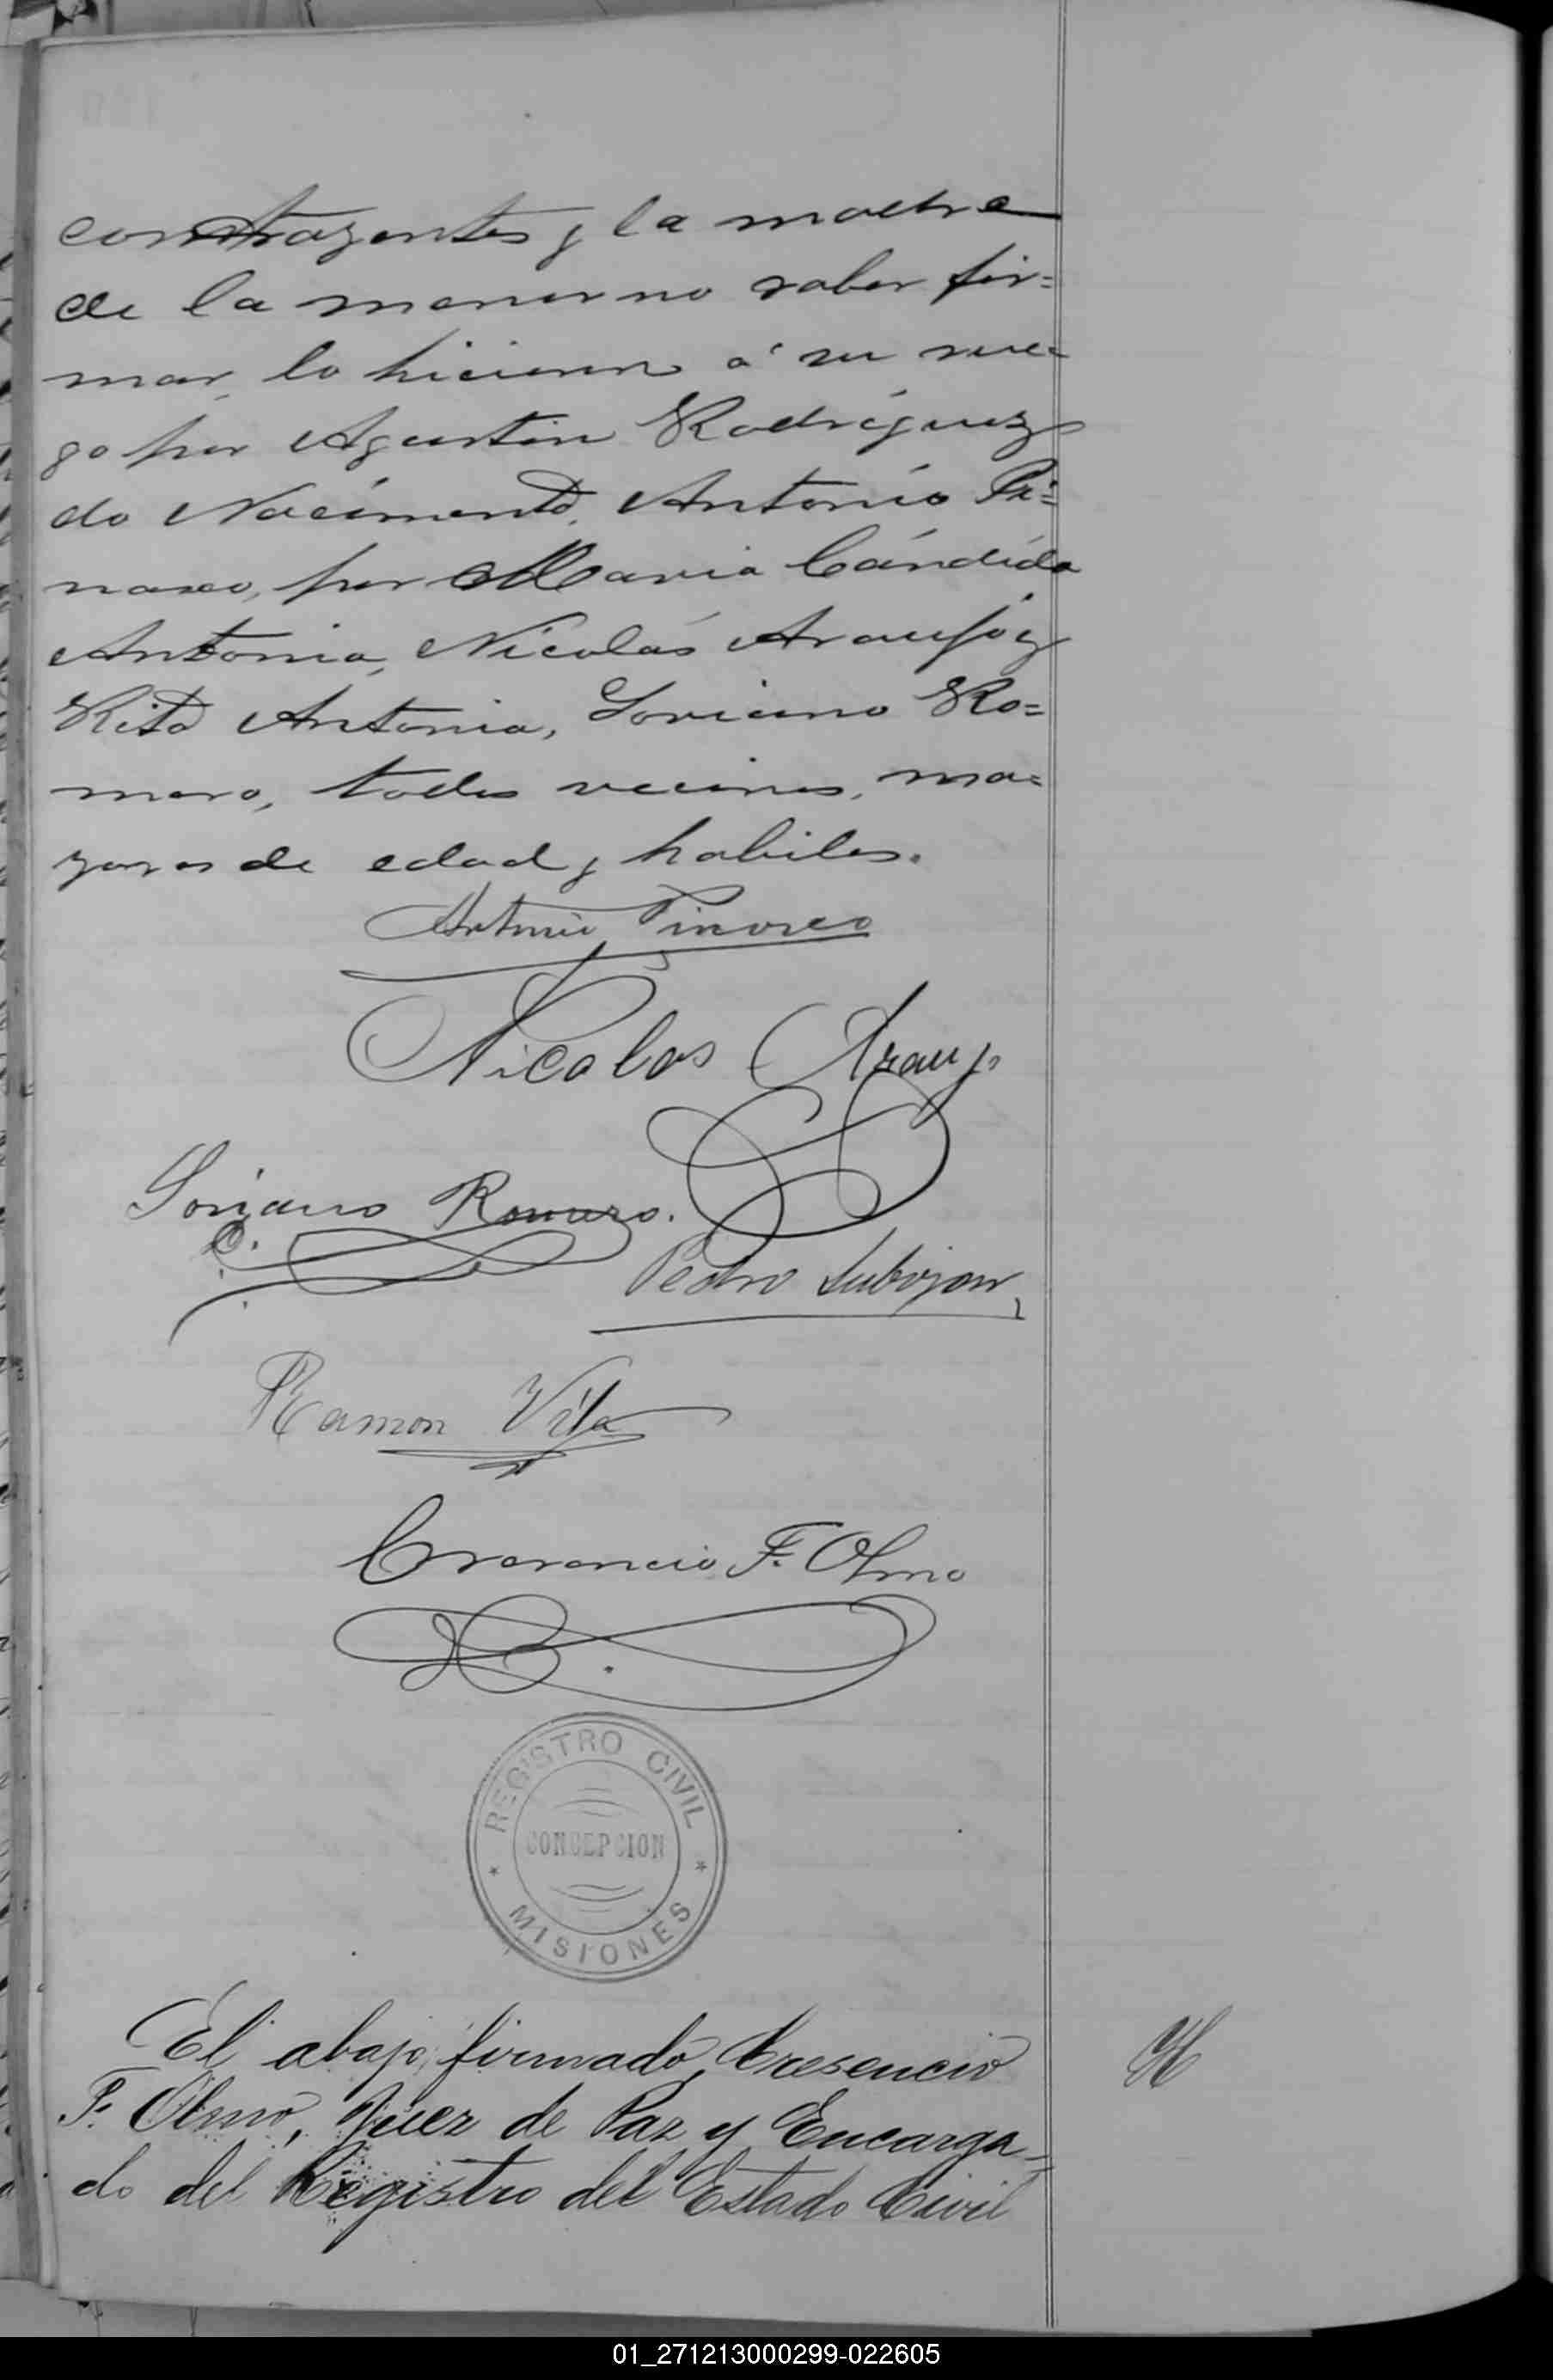 contrayentes y la madre
de la menor no saber fir=
mar, lo hicieron á su rue-
go por Agustin Rodríguez
do Nacimento, Antonio Pi=
naseo, por Maria Cándida
Antonia, Nicolás Araujo y
Rita Antonia, Soriano Ro=
mero, todos vecinos, ma=
yores de edad y habiles.
Antonio Pinaseo
Nicolas Araujo
Soriano Romero.
Pedro
Ramon Vila
Cresencio F. Olmo
REGISTRO CIVIL
CONCEPCION
* MISIONES *
El abajo firmado, Cresencio
F. Olmo, Juez de Paz y Encarga=
do del Registro del Estado Civil
01_271213000299-022605